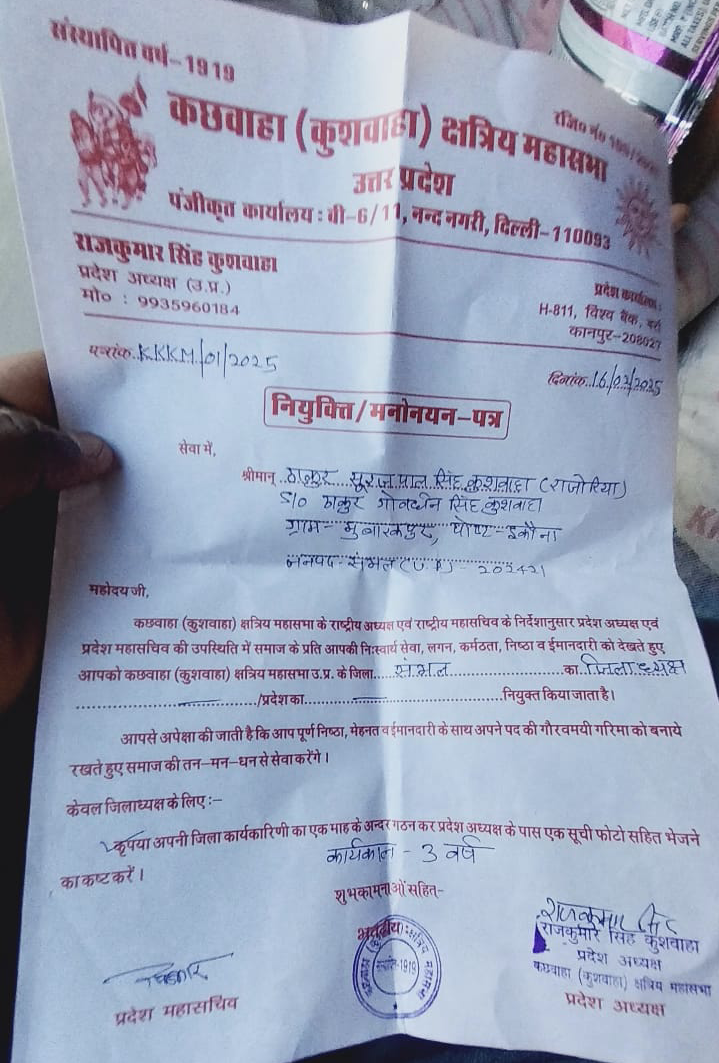 संस्थापित वर्ष-1919
रजि० नं०
कछवाहा (कुशवाहा) क्षत्रिय महासभा
उत्तर प्रदेश
पंजीकृत कार्यालय : बी-6/11, नन्द नगरी, दिल्ली-110093
राजकुमार सिंह कुशवाहा
प्रदेश अध्यक्ष (उ.प्र.)
मो० : 9935960184
प्रदेश कार्यालय :
H-811, विश्व बैंक, बर्रा
कानपुर-208027
पत्रांक. KKKM/01/2025
दिनांक. 16/02/2025
नियुक्ति/मनोनयन-पत्र
सेवा में,
श्रीमान् ठाकुर सूरजपाल सिंह कुशवाहा (राजोरिया)
S/o ठाकुर गोवर्धन सिंह कुशवाहा
ग्राम- मुबारकपुर, पोष्ट- इकौना
जनपद- संभल (U.P)- 202421
महोदय जी,
कछवाहा (कुशवाहा) क्षत्रिय महासभा के राष्ट्रीय अध्यक्ष एवं राष्ट्रीय महासचिव के निर्देशानुसार प्रदेश अध्यक्ष एवं
प्रदेश महासचिव की उपस्थिति में समाज के प्रति आपकी निःस्वार्थ सेवा, लगन, कर्मठता, निष्ठा व ईमानदारी को देखते हुए
आपको कछवाहा (कुशवाहा) क्षत्रिय महासभा उ.प्र. के जिला..... संभल ..... का जिलाध्यक्ष
...../प्रदेश का ..... नियुक्त किया जाता है।
आपसे अपेक्षा की जाती है कि आप पूर्ण निष्ठा, मेहनत व ईमानदारी के साथ अपने पद की गौरवमयी गरिमा को बनाये
रखते हुए समाज की तन-मन-धन से सेवा करेंगे।
केवल जिलाध्यक्ष के लिए :-
कृपया अपनी जिला कार्यकारिणी का एक माह के अन्दर गठन कर प्रदेश अध्यक्ष के पास एक सूची फोटो सहित भेजने
का कष्ट करें।
कार्यकाल - 3 वर्ष
शुभकामनाओं सहित-
भवदीय :
राजकुमार सिंह
राजकुमार सिंह कुशवाहा
प्रदेश अध्यक्ष
कछवाहा (कुशवाहा) क्षत्रिय महासभा
प्रदेश अध्यक्ष
प्रदेश महासचिव